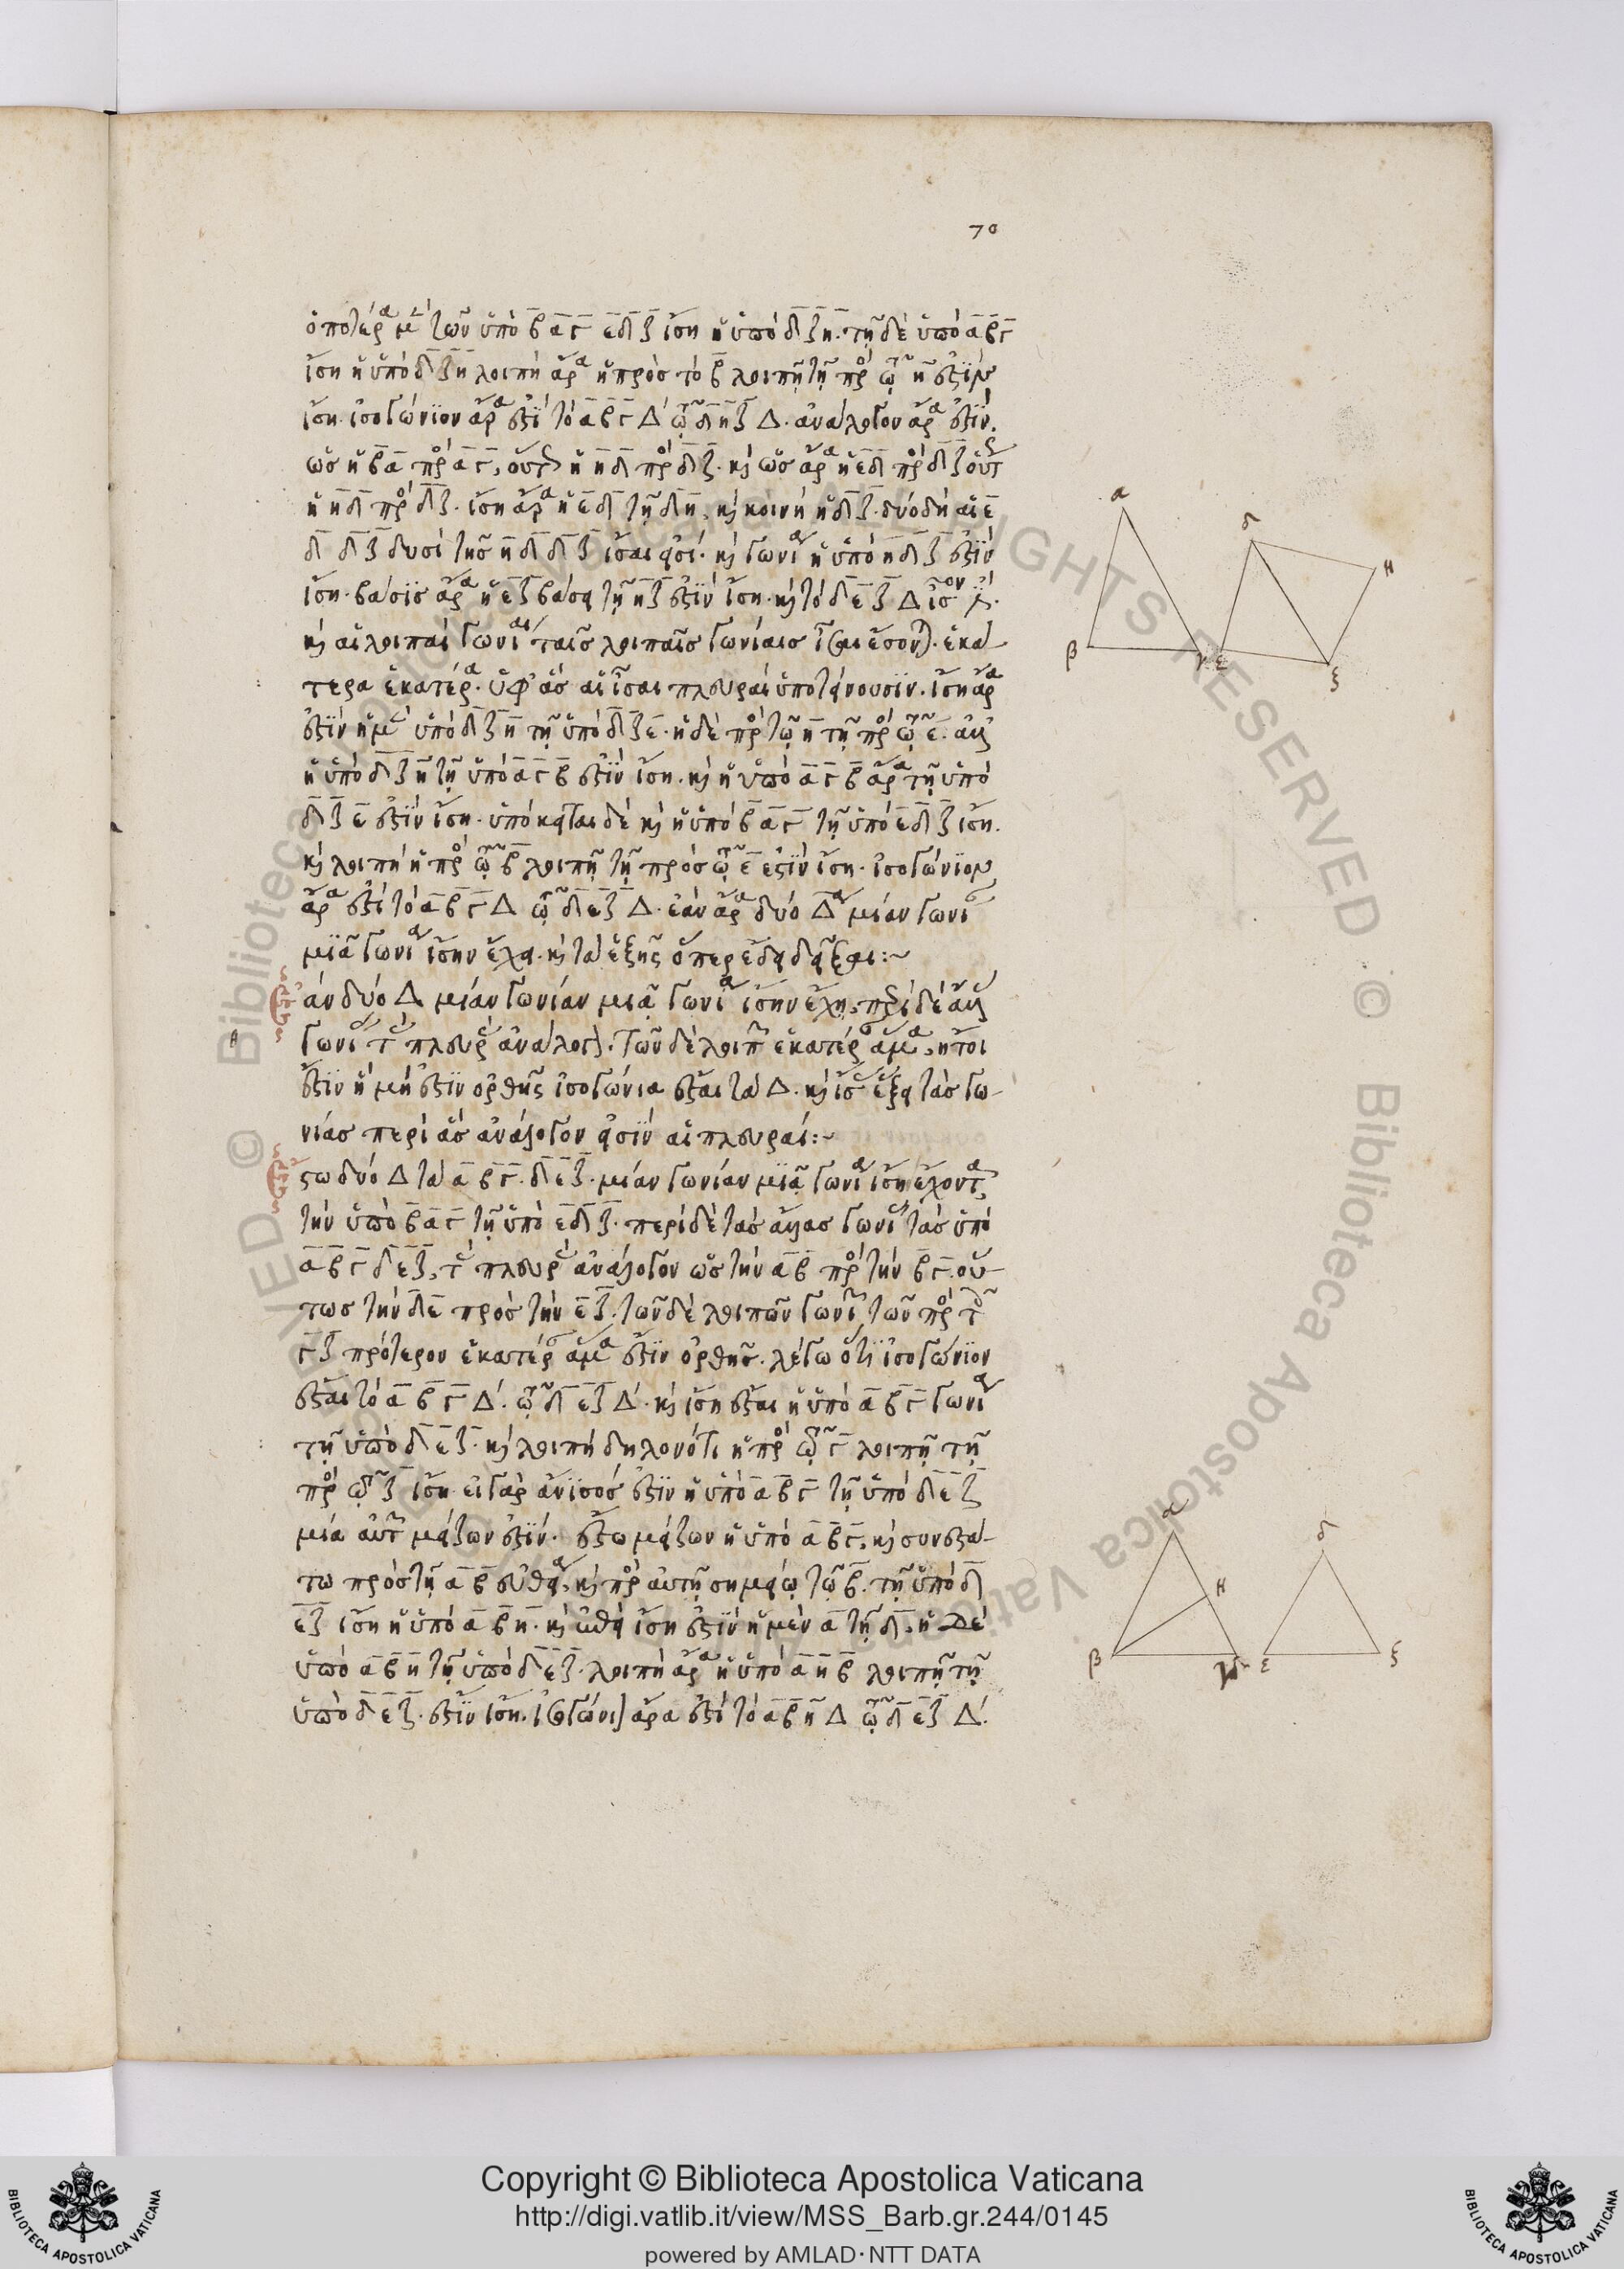 70
ὁποτέρα μὲν τῶν ὑπὸ βαγ εδζ ἴση ἡ ὑπὸ δζη. τῇ δὲ ὑπὸ αβγ
ἴση ἡ ὑπὸ δζη λοιπὴ ἄρα ἡ πρὸς τὸ β λοιπῇ τῇ πρὸς τῷ η ἐστὶν
ἴση. ἰσογώνιον ἄρα ἐστὶ τὸ αβγ Δ τῷ δηζ Δ. ἀνάλογον ἄρα ἐστὶν.
ὡς ἡ βα πρὸς αγ, οὕτως ἡ ηδ πρὸς δζ. καὶ ὡς ἄρα ἡ εδ πρὸς δζ οὕτως
ἡ ηδ πρὸς δζ. ἴση ἄρα ἡ εδ τῇ δη, καὶ κοινὴ ἡ δζ. δύο δὴ αἱ ε
δ δζ δυσὶ τῆς ηδ δζ ἴσαι εἰσί. καὶ γωνία ἡ ὑπὸ ηδζ ἐστὶν
ἴση. βάσις ἄρα ἡ εζ βάσει τῇ ηζ ἐστὶν ἴση. καὶ τὸ δεζ Δ ἴσον
καὶ αἱ λοιπαὶ γωνίαι ταῖς λοιπαῖς γωνίαις ἴσαι ἔσονται. ἑκα
τερα ἑκατέρα. ὑφ' ἃς αἱ ἴσαι πλευραὶ ὑποτείνουσιν. ἴση ἄρα
ἐστὶν ἡ μὲν ὑπὸ δζη τῇ ὑπὸ δζε. ἡ δὲ πρὸς τῷ η τῇ πρὸς τῷ ε. ἀλλ
ἡ ὑπὸ δζη τῇ ὑπὸ αγβ ἐστὶν ἴση. καὶ ἡ ὑπὸ αγβ ἄρα τῇ ὑπὸ
δζε ἐστὶν ἴση. ὑπόκειται δὲ καὶ ἡ ὑπὸ βαγ τῇ ὑπὸ εδζ ἴση.
καὶ λοιπὴ ἡ πρὸς τῷ β λοιπῇ τῇ πρὸς τῷ ε ἐστὶν ἴση. ἰσογώνιον
ἄρα ἐστὶ τὸ αβγ Δ τῷ δεζ Δ. ἐὰν ἄρα δύο Δα μίαν γωνίαν
μιᾷ γωνία ἴσην ἔχει. καὶ τὰ ἑξῆς ὅπερ ἔδει δεῖξαι:~
ἐὰν δύο Δ μίαν γωνίαν μιᾷ γωνία ἴσην ἔχῃ, περὶ δὲ ἄλλας
γωνίας τὰς πλευρὰς ἀνάλογον. τῶν δὲ λοιπῶν ἑκατέραν ἅμα, ἤτοι
ἐστὶν ἢ μή ἐστιν ὀρθῆς ἰσογώνια ἔσται τὰ Δ. καὶ ἴσας ἕξει τὰς γω
νίας περὶ ἃς ἀνάλογον εἰσὶν αἱ πλευραί:~
ἔστω δύο Δ τὰ αβγ. δεζ. μίαν γωνίαν μιᾷ γωνία ἴσην ἔχοντα,
τὴν ὑπὸ βαγ τῇ ὑπὸ εδζ. περὶ δὲ τὰς ἄλλας γωνίας τὰς ὑπὸ
αβγ δεζ, τὰς πλευρὰς ἀνάλογον ὡς τὴν αβ πρὸς τὴν βγ. οὕ
τως τὴν δε πρὸς τὴν εζ. τῶν δὲ λοιπῶν γωνιῶν τῶν πρὸς τοῖς
γζ πρότερον ἑκατέραν ἅμα ἐστὶν ὀρθῆς. λέγω ὅτι ἰσογώνιον
ἔσται τὸ αβγ Δ. τῷ δεζ Δ. καὶ ἴση ἔσται ἡ ὑπὸ αβγ γωνία
τῇ ὑπὸ δεζ. καὶ λοιπὴ δηλονότι ἡ πρὸς τῷ γ λοιπῇ τῇ
πρὸς τῷ ζ ἴση. εἰ γὰρ ἄνισος ἐστὶν ἡ ὑπὸ αβγ τῇ ὑπὸ δεζ
μία αὐτῶν μείζων ἐστίν. ἔστω μείζων ἡ ὑπὸ αβγ, καὶ συνεστά
τω πρὸς τῇ αβ εὐθεία, καὶ πρὸς αὐτῇ σημείῳ τῷ β. τῇ ὑπὸ δ
εζ ἴση ἡ ὑπὸ αβη. καὶ ἐπεὶ ἴση ἐστὶν ἡ μὲν α τῇ δ, ἡ δὲ
ὑπὸ αβη τῇ ὑπὸ δεζ. λοιπὴ ἄρα ἡ ὑπὸ αηβ λοιπῇ τῇ
ὑπὸ δεζ. ἐστὶν ἴση. ἰσογώνιον ἄρα ἐστὶ τὸ αβη Δ τῷ δεζ Δ.
α
β
γ
δ
ε
ζ
η
α
β
γ
η
δ
ε
ζ
Copyright © Biblioteca Apostolica Vaticana
http://digi.vatlib.it/view/MSS_Barb.gr.244/0145
powered by AMLAD·NTT DATA
BIBLIOTECA APOSTOLICA VATICANA
BIBLIOTECA APOSTOLICA VATICANA